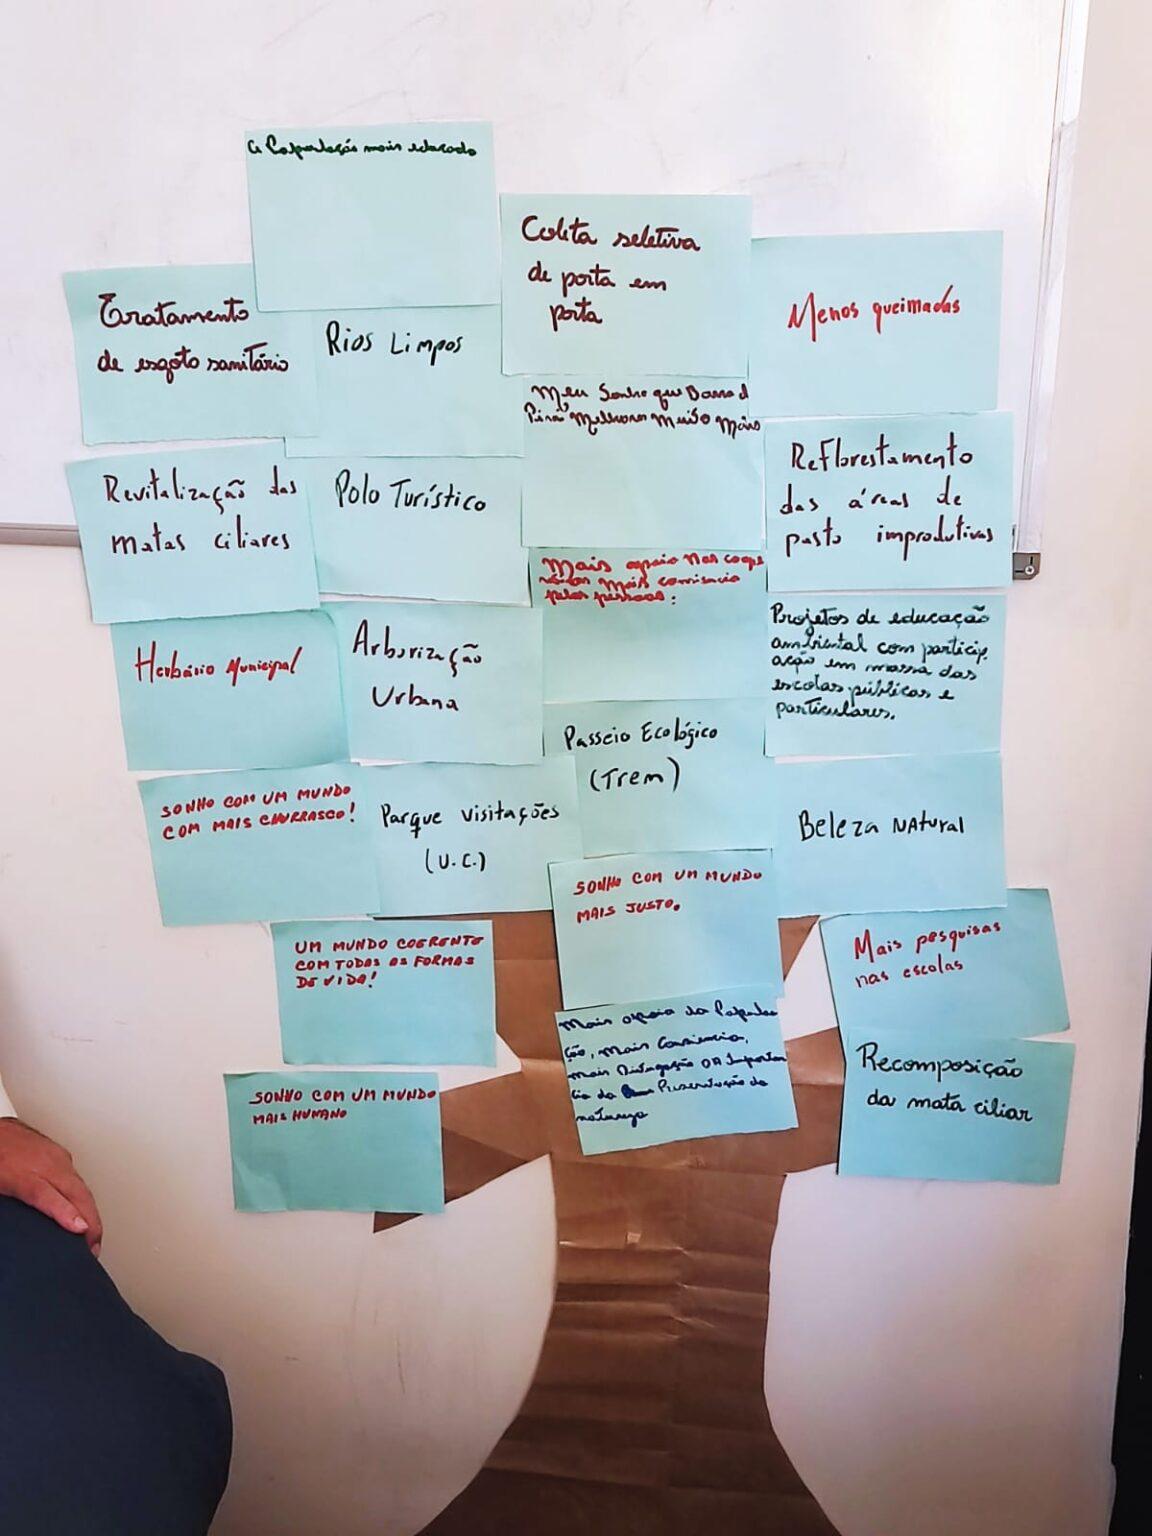 a População mais educada
Coleta seletiva
de porta em
porta
Menos queimadas
Tratamento
de esgoto sanitário
Rios Limpos
Meu Sonho que Barra d
Piraí Melhorar Muito Mais
Reflorestamento
das áreas de
pasto improdutivas
Revitalização das
matas ciliares
Polo Turístico
Mais apoio nas coope
mais
pelas pessoas:
Projetos de educação
ambiental com particip
ação em massa das
escolas públicas e
particulares.
Herbário Municipal
Arborização
Urbana
Passeio Ecológico
(Trem)
SONHO COM UM MUNDO
COM MAIS CHURRASCO!
Parque visitações
(U.C.)
Beleza Natural
SONHO COM UM MUNDO
MAIS JUSTO.
UM MUNDO COERENTE
COM TODAS AS FORMAS
DE VIDA!
Mais pesquisas
nas escolas
Mais apoio da Popula
ção, Mais Consiencia,
mais Divugação DA Importan
cia da Preservação da
natureza
Recomposição
da mata ciliar
SONHO COM UM MUNDO
MAIS HUMANO